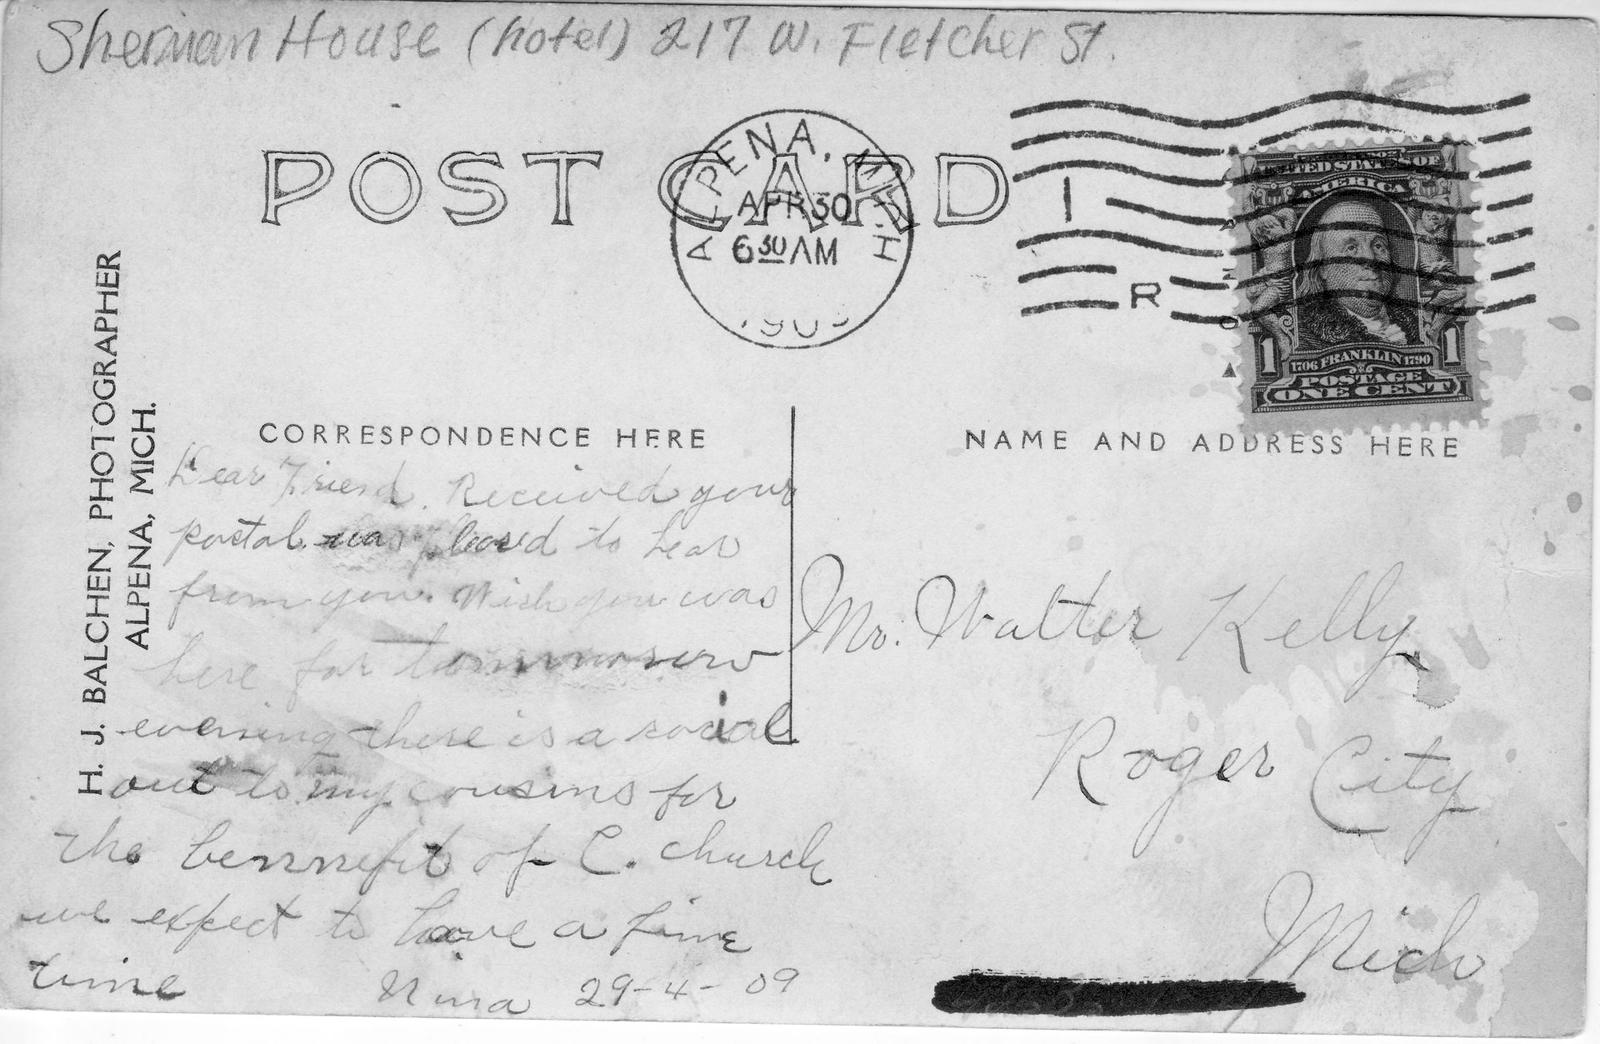 Sherman House (hotel) 217 W. Fletcher St.
POST CARD
ALPENA, MICH.
APR 30
6 30 AM
190
R
UNITED STATES OF
AMERICA
1 1706 FRANKLIN 1790 1
POSTAGE
ONE CENT
H. J. BALCHEN, PHOTOGRAPHER
ALPENA, MICH.
CORRESPONDENCE HERE
Dear Friend. Received your
postal. was pleased to hear
from you. Wish you was
here for tommorow
evening there is a social
out to my cousins for
the bennefit of C. church
we expect to have a fine
time
Nina 29-4-09
NAME AND ADDRESS HERE
Mr. Walter Kelly
Roger City
Mich